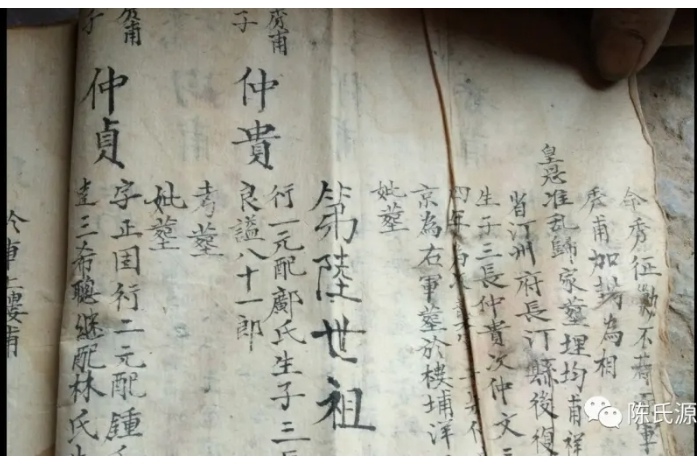 令秀征勦不
賡甫加封為相
皇恩准乱歸家墓埋均甫祥
省汀州府長汀縣後復
生子三長仲貴次仲文三
四年
京為右軍墓於楼埔洋
妣墓
第陸世祖
賡甫
子
仲貴
行一元配鄺氏生子三長
良謚八十一郎
考墓
妣墓
賡甫
子
仲貞
字正固行二元配鍾氏
達三希聰継配林氏生
陈氏源